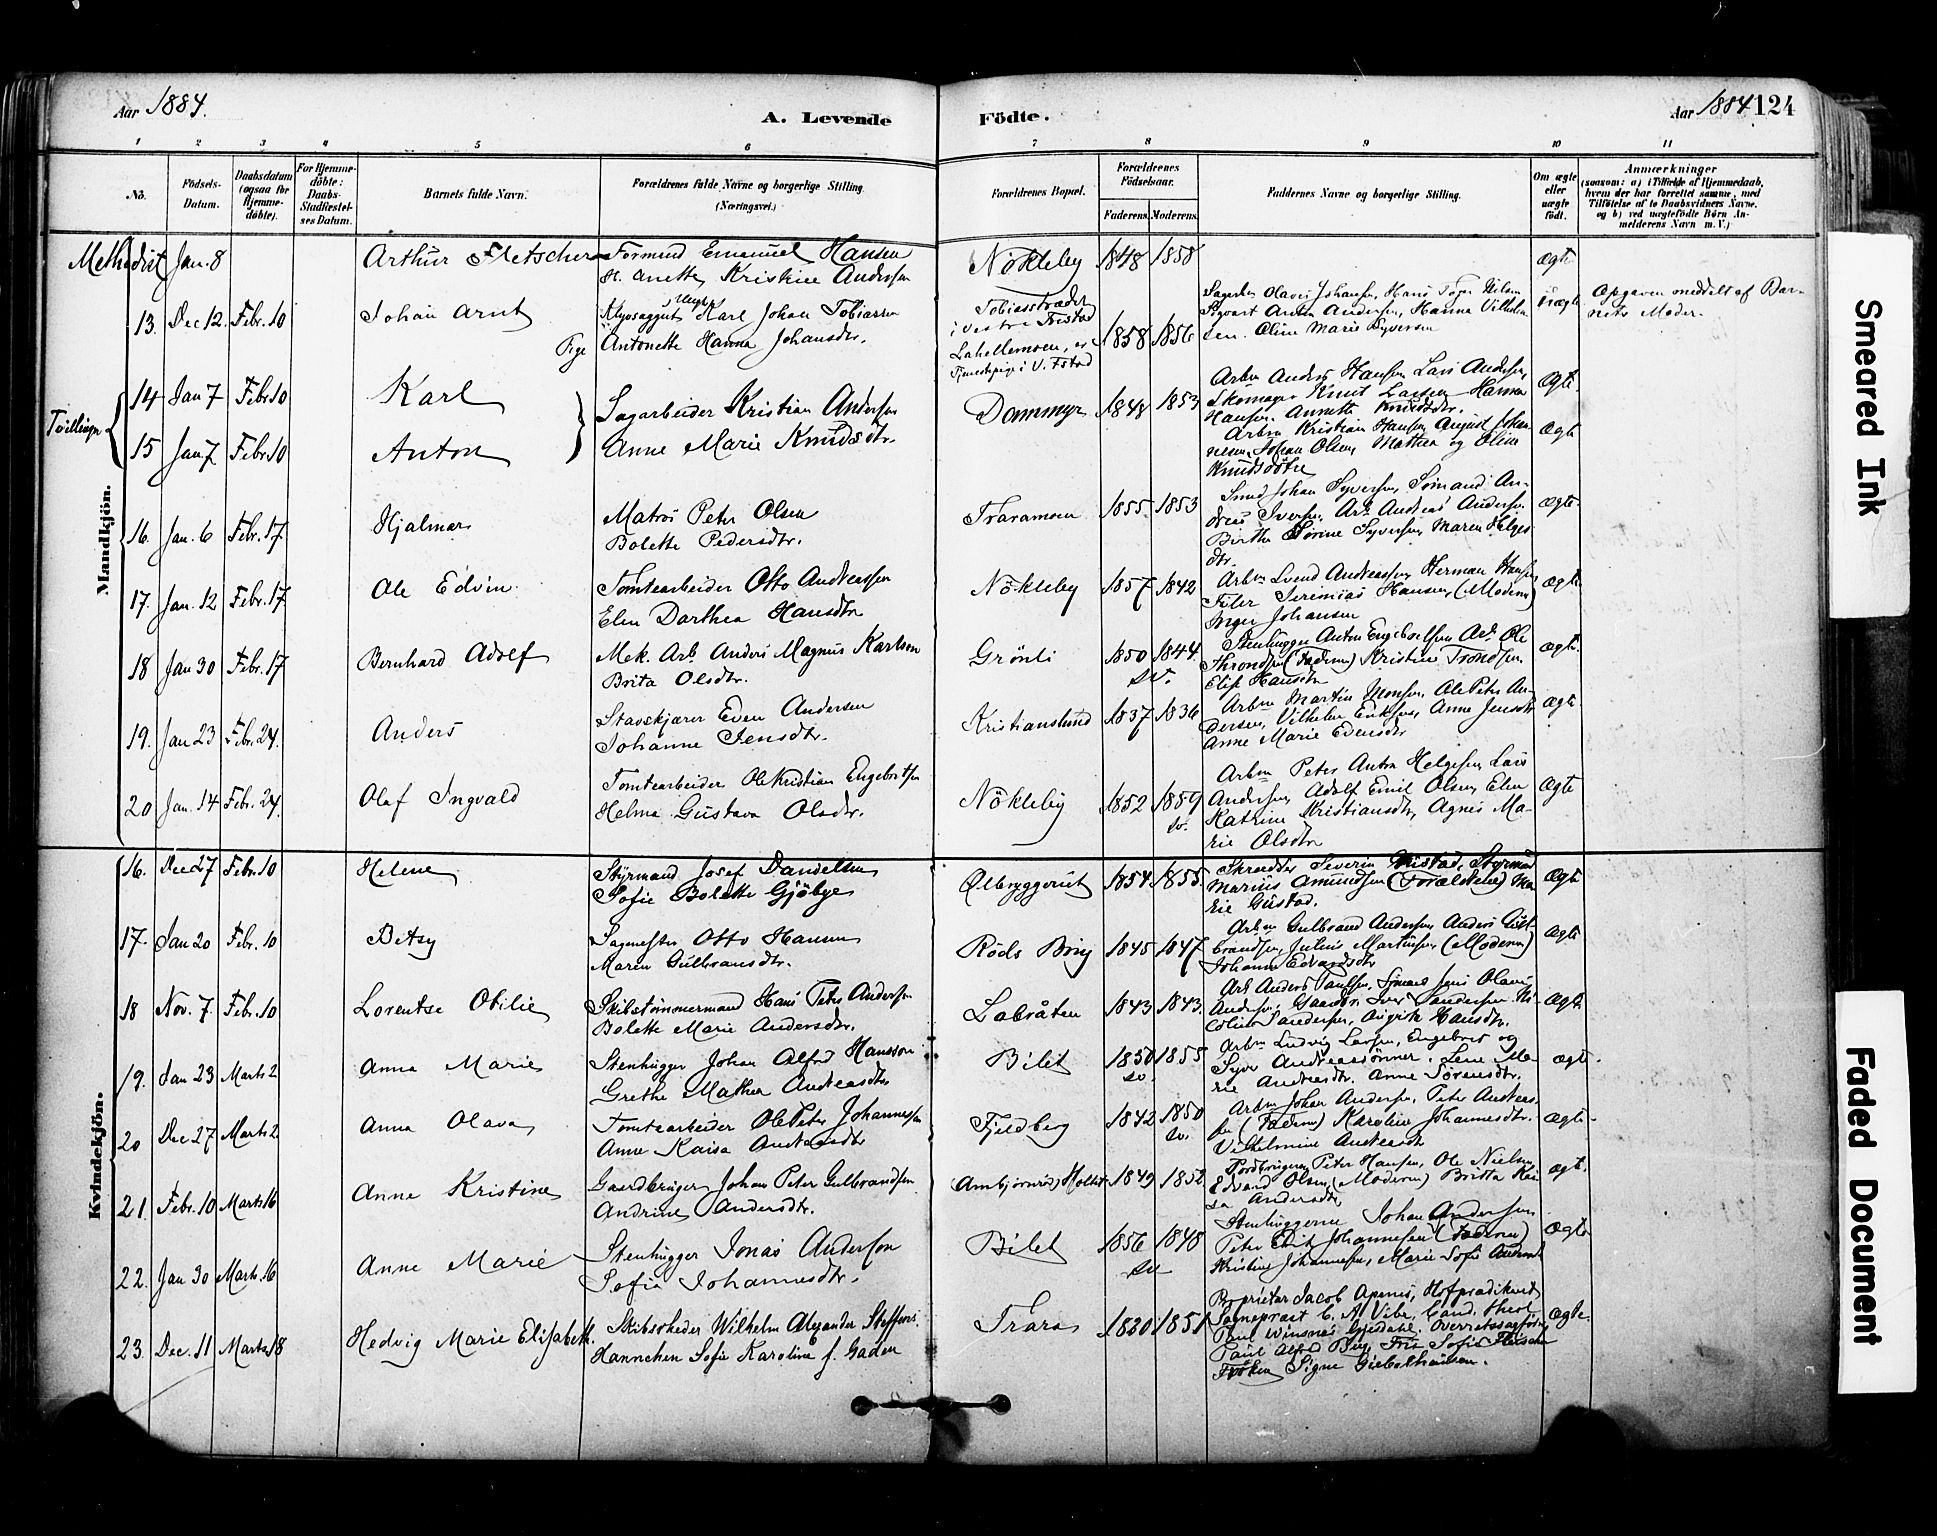 Aar 1884.
A. Levende
Födte.
Aar 1884
124
1 2 3 4 5 6 7 8 9 10 11
No.
Födsels-Datum.
Daabsdatum (ogsaa for Hjemme-döbte).
For Hjemme-döbte: Daabs-Stadfæstel-ses Datum.
Barnets fulde Navn.
Forældrenes fulde Navne og borgerlige Stilling. (Næringsvei.)
Forældrenes Bopæl.
Forældrenes Födselsaar.
Faderens. Moderens.
Faddernes Navne og borgerlige Stilling.
Om ægte eller uægte födt.
Anmærkninger
(saasom: a) i Tilfælde af Hjemmedaab, hvem der har forrettet samme, med Tilföielse af to Daabsvidners Navne, og b) ved uægtefödte Börn An-melderens Navn m. V.)
Mandkjön.
Methodist Jan. 8 Arthur Fletscher Formand Emanuel Hansen
H. Anette Kristine Andersen
Nökleby 1848 1858 Ægte
13. Dec 12. Febr. 10 Johan Arnt
Ungk. Karl Johan Tobiassen
Pige Antonette Hanna Johansdtr.
Tobiasstrædet
i Vestre Fristad
Lahellemoen, er
Tjenestepige i V. Fstad
1858 1856
Johansen, Hans
Sigvart Anton Andersen, Hanna Vilhelm
sen. Oline Marie Syversen
Uægte
Opgaven meddelt af Bar-
nets Moder.
Tvillinger
14 Jan 7 Febr. 10 Karl
15 Jan 7 Febr. 10 Anton
Sagarbeider Kristian Andersen
Anne Marie Knudsdtr.
Dammyr 1848 1853
Arbm Anders Hansen, Lars Andersen,
Skomager Knut Larsen Hanna
Hansen. Annette Knudsdtr.
Ægte
Arbm Kristian Hansen, August Johan
nesen, Johan Olsen, Mathea og Oline
Knudsdötre
Ægte
16. Jan. 6 Febr. 17. Hjalmar
Matros Peter Olsen
Bolette Pedersdtr.
Traramoen 1855 1853
Smed Johan Syversen, Sömand An-
dreas Iversen, Arb. Andreas Andersen
Birthe Sörine Syversen, Maren Helges
dtr.
Ægte.
17. Jan. 12 Febr. 17 Ole Edvin
Tomtearbeider Otto Andreassen
Elen Dorthea Hansdtr
Nökleby 1857 1842
Arbm Svend Andreassen, Herman Hansen
Jeremias Hansen, (Moderen)
Inger Johansen
Ægte
18 Jan 30 Febr. 17 Bernhard Adolf
Mek. Arb. Anders Magnus Karlsson
Brita Olsdtr.
Grönli 1850 1844
sv.
Stenhugger Anton Engebretsen Arb. Ole
Throndsen (Faderen) Kristine Trondsen
Elise Hansdtr
Ægte.
19. Jan 23 Febr. 24. Anders
Stavskjærer Even Andersen
Johanne Jensdtr.
Kristianslund 1837 1836
Arbm Martin Monsen, Ole Peter An
dersen, Vilhelm Eriksen, Anne Jensdtr
Anne Marie Evensdtr
Ægte
20 Jan. 14 Febr. 24. Olaf Ingvald
Tomtearbeider Ole Kristian Engebretsen
Helma Gustava Olsdtr.
Nökleby 1852 1859
sv.
Arbm Peter Anton Helgesen, Lars
Andersen, Adolf Emil Olsen, Elen
Katrine Kristiansdtr, Agnes Ma-
rie Olsdtr
Ægte
Kvindekjön.
16. Dec 27 Febr. 10 Helene
Styrmand Josef Danielsen
Sofie Bolette Gjöbye
Ölbryggerut 1854. 1855.
Skrædder Severin Gustad, Styrmand
Marius Amundsen (Forældrene) Ma
rie Gustad.
Ægte
17. Jan 20 Febr. 10 Betsy
Sagmester Otto Hansen
Maren Gulbransdtr.
Röds Brug 1845 1847
Arbm Gulbrand Andersen, Anders Gul-
brandsen, Julius Martinsen, (Moderen)
Johanne Edvardsdtr
Ægte
18 Nov. 7. Febr. 10 Lorentse Otilie
Skibstömmermand Hans Peter Andersen
Bolette Marie Andersdtr.
Labråten 1843 1843.
Arb Anders Paulsen, Sömand Jens Olaus
Andersen, Gaardbr. Iver Sandersen Ni
coline Sandersen, Hansdtr.
Ægte.
19. Jan 23 Marts 2 Anna Marie
Stenhugger Johan Alfred Hansson
Grethe Mathea Andreasdtr
Bilet 1850 1855
sv.
Arbm Ludvig Larsen, Engebret og
Syver Andreassönner. Lene Ma-
rie Andreasdtr. Anne Sörensdtr.
Ægte.
20 Dec 27 Marts 2 Anna Olava
Tomtearbeider Ole Peter Johannessen
Anne Kaisa Andreasdtr
Fjeldberg 1842 1850
sv.
Arbm Johan Andersen, Peter Andreas
sen (Faderen) Karoline Johannesdtr.
Vilhelmine Andreasdtr
Ægte.
21. Febr. 10 Marts 16 Anna Kristine
Gaardbruger Johan Peter Gulbrandsen
Andrine Andersdtr.
(Ambjörnröd) Holtet 1849 1852
Jordbrugerne Peter Hansen, Ole Nielsen
Edvard Olsen, (Moderen) Britta Kai
sa Andersdtr
Ægte.
22. Jan 30 Marts 16 Anne Marie
Stenhugger Jonas Andersson
Sofia Johannesdtr.
Bilet 1856 1848
sv.
Stenhuggerne Johan Andersen
Peter Johannesen (Faderen)
Kristine Johannesen, Marie Sofie
Ægte
23. Dec. 11 Marts 18 Hedvig Marie Elisabeth.
Skibsrheder Wilhelm Alexander Steffens.
Hannchen Sofie Karoline f. Gaden
Trara 1830 1851
Proprietær Jacob Apenes, Hofprædikant
Sogneprest C. A. Vibe, Cand. theol
Paul Winsnes Overretssagförer
Paul Alfred Berg, Fru Sofie
Fröken Signe
Ægte.
Smeared Ink
Faded Document